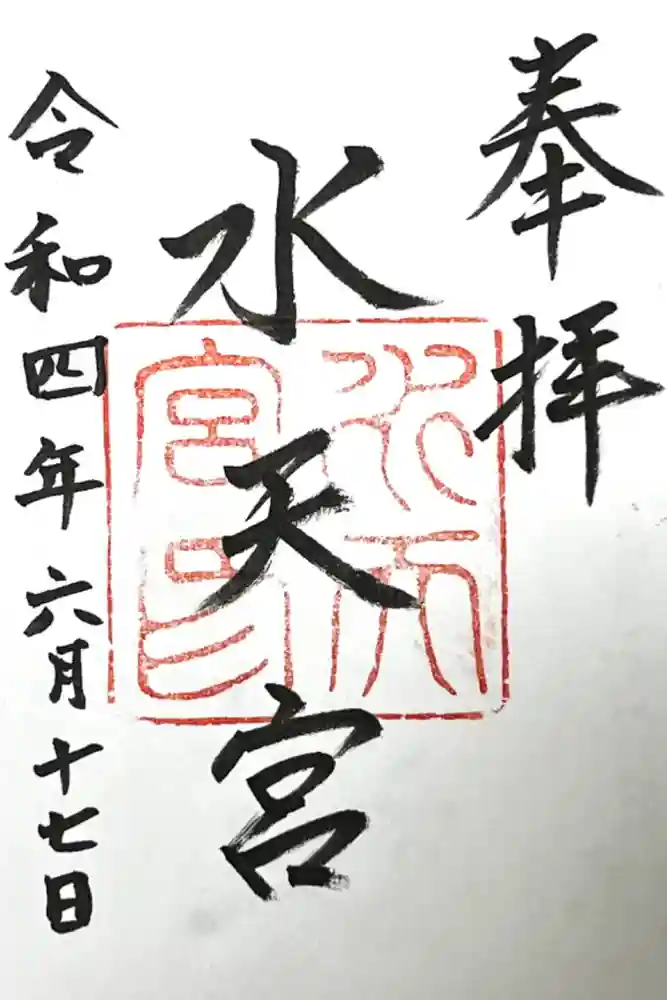 奉拝
水天宮
令和四年六月十七日
水天宮印